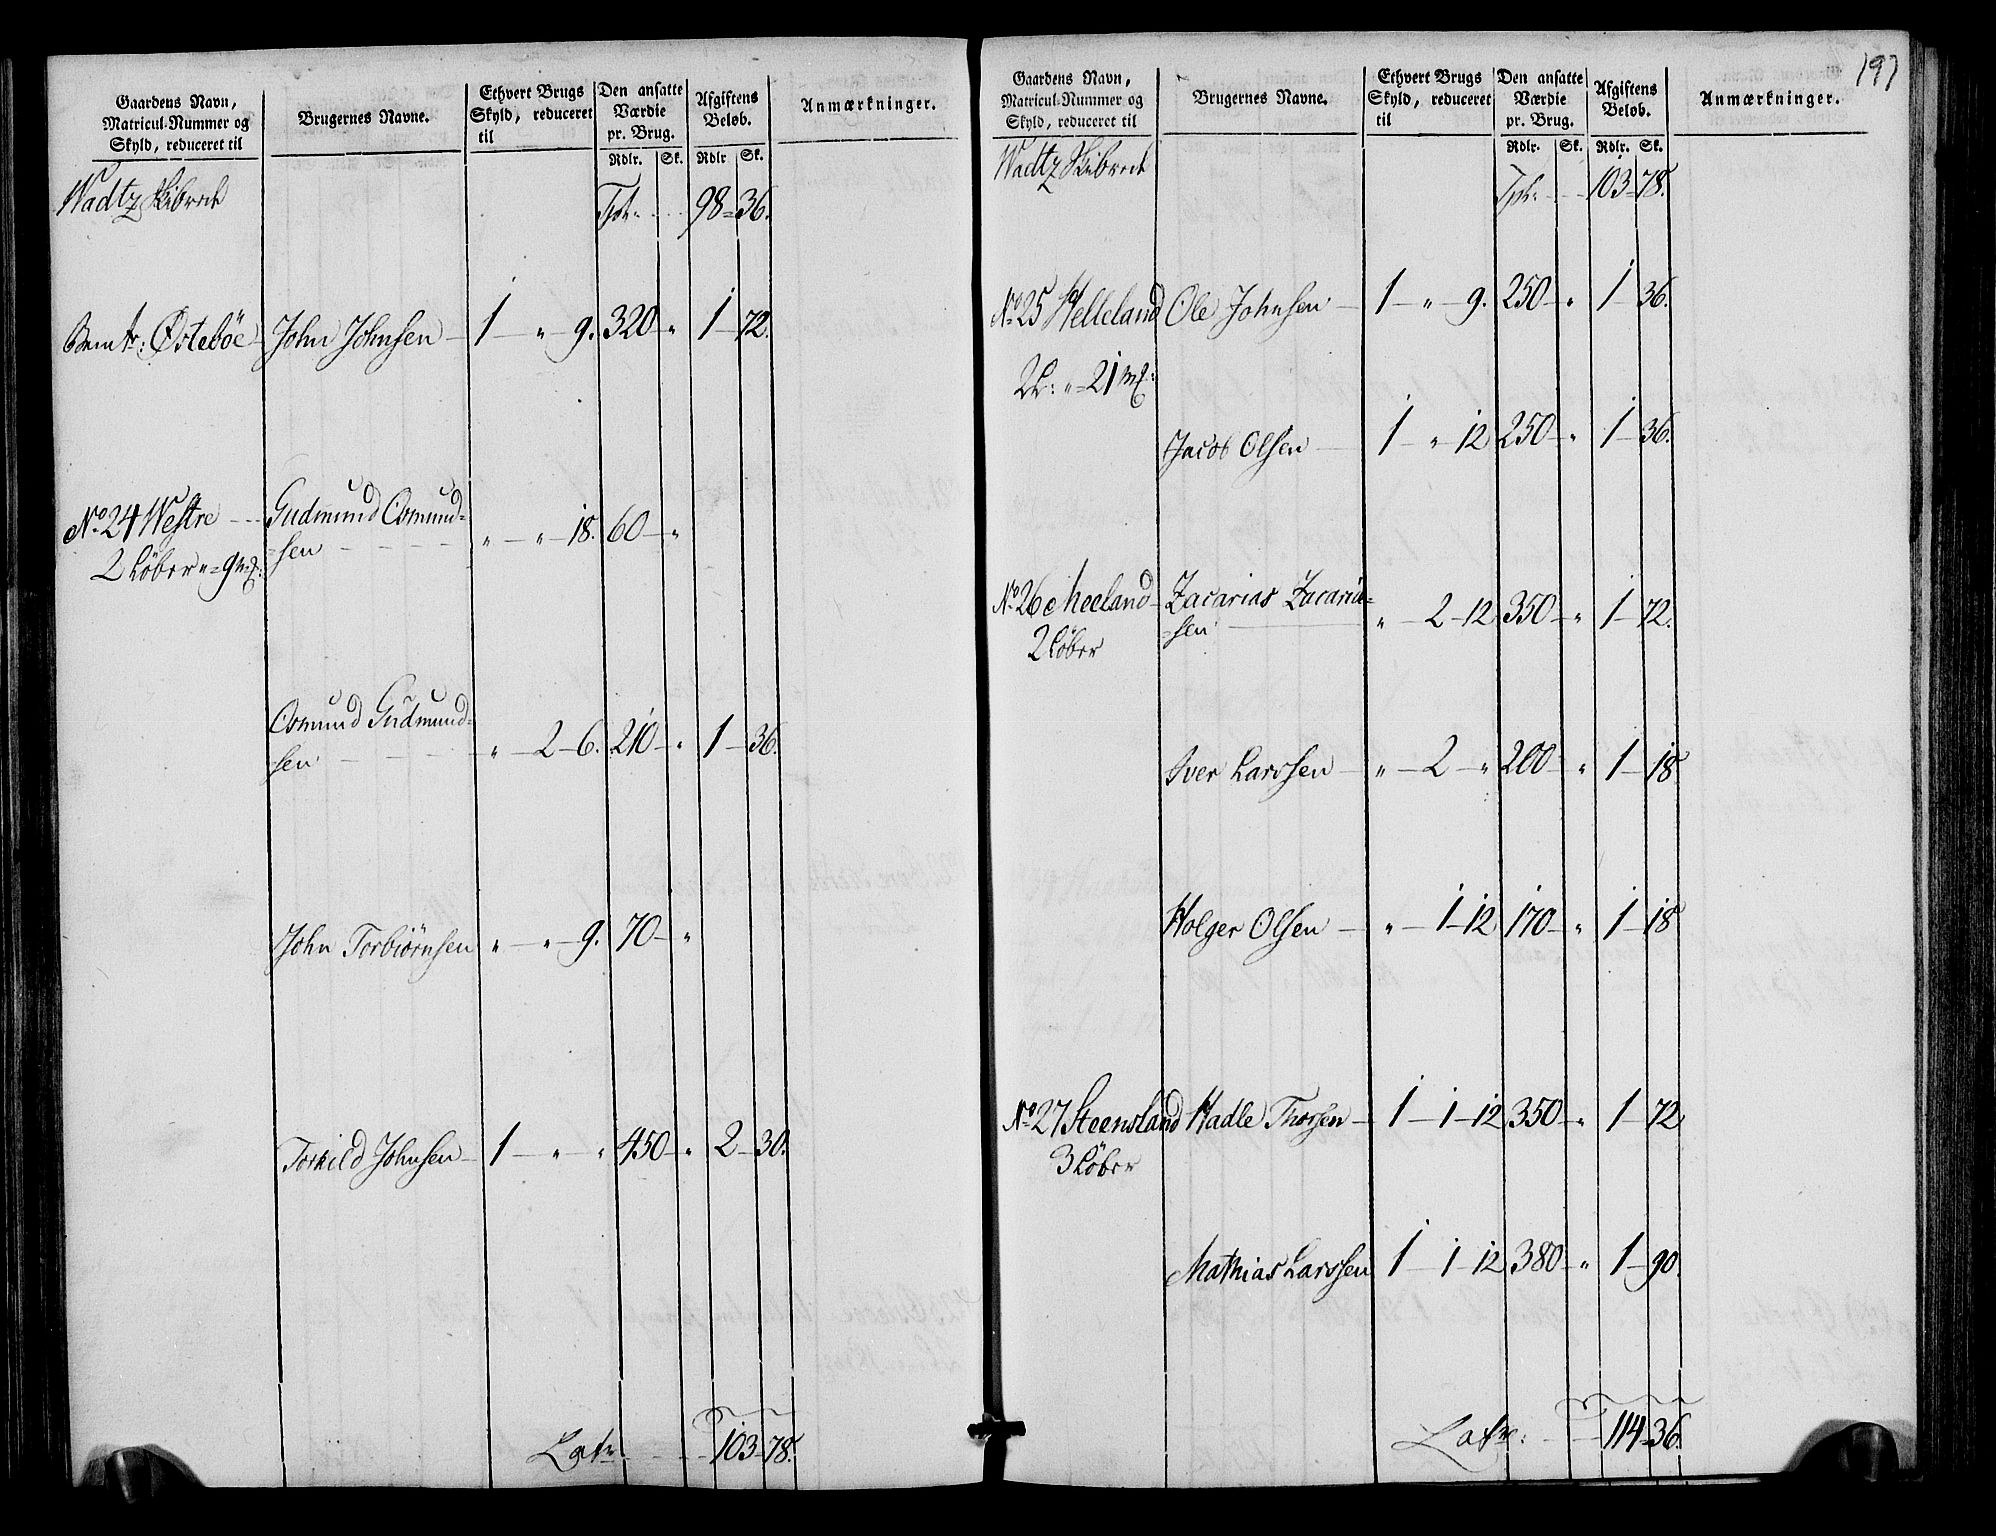 Gaardens Navn, Matricul-Nummer og Skyld, reduceret til | Brugernes Navne. | Ethvert Brugs Skyld, reduceret til | Den ansatte Værdie pr. Brug. Rdlr. Sk. | Afgiftens Beløb. Rdlr Sk. | Anmærkninger.
Wadtz Skibrede
Tpt: 98 36.
Bem:te: Østebøe John Johnsen 1 " 9. 320 " 1 72.
No 24 Westre Gudmund Osmund=
2 Løber " 9 =sen " " 18. 60 "
Osmund Gudmund=
sen " 2 6. 210 " 1 36.
John Torbiørnsen " " 9. 70 "
Torkild Johnsen 1 " " 450 " 2 30.
Latr. 103 78.
197
Gaardens Navn, Matricul-Nummer og Skyld, reduceret til | Brugernes Navne. | Ethvert Brugs Skyld, reduceret til | Den ansatte Værdie pr. Brug. Rdlr. Sk. | Afgiftens Beløb. Rdlr. Sk. | Anmærkninger.
Wadtz Skibrede
Tpt: 103 78.
No 25 Helleland Ole Johnsen 1 " 9. 250 " 1 36.
2 L: " 21
Jacob Olsen 1 " 12 250 " 1 36.
No 26 Meeland Zacarias Zacaria=
2 Løber =sen " 2 12 350 " 1 72.
Iver Larssen " 2 " 200 " 1 18
Holger Olsen " 1 12 170 " 1 18
No 27 Steensland Hadle Thorsen 1 1 12 350 " 1 72
3 Løber
Mathias Larssen 1 1 12 380 " 1 90.
Latr: 114 36.